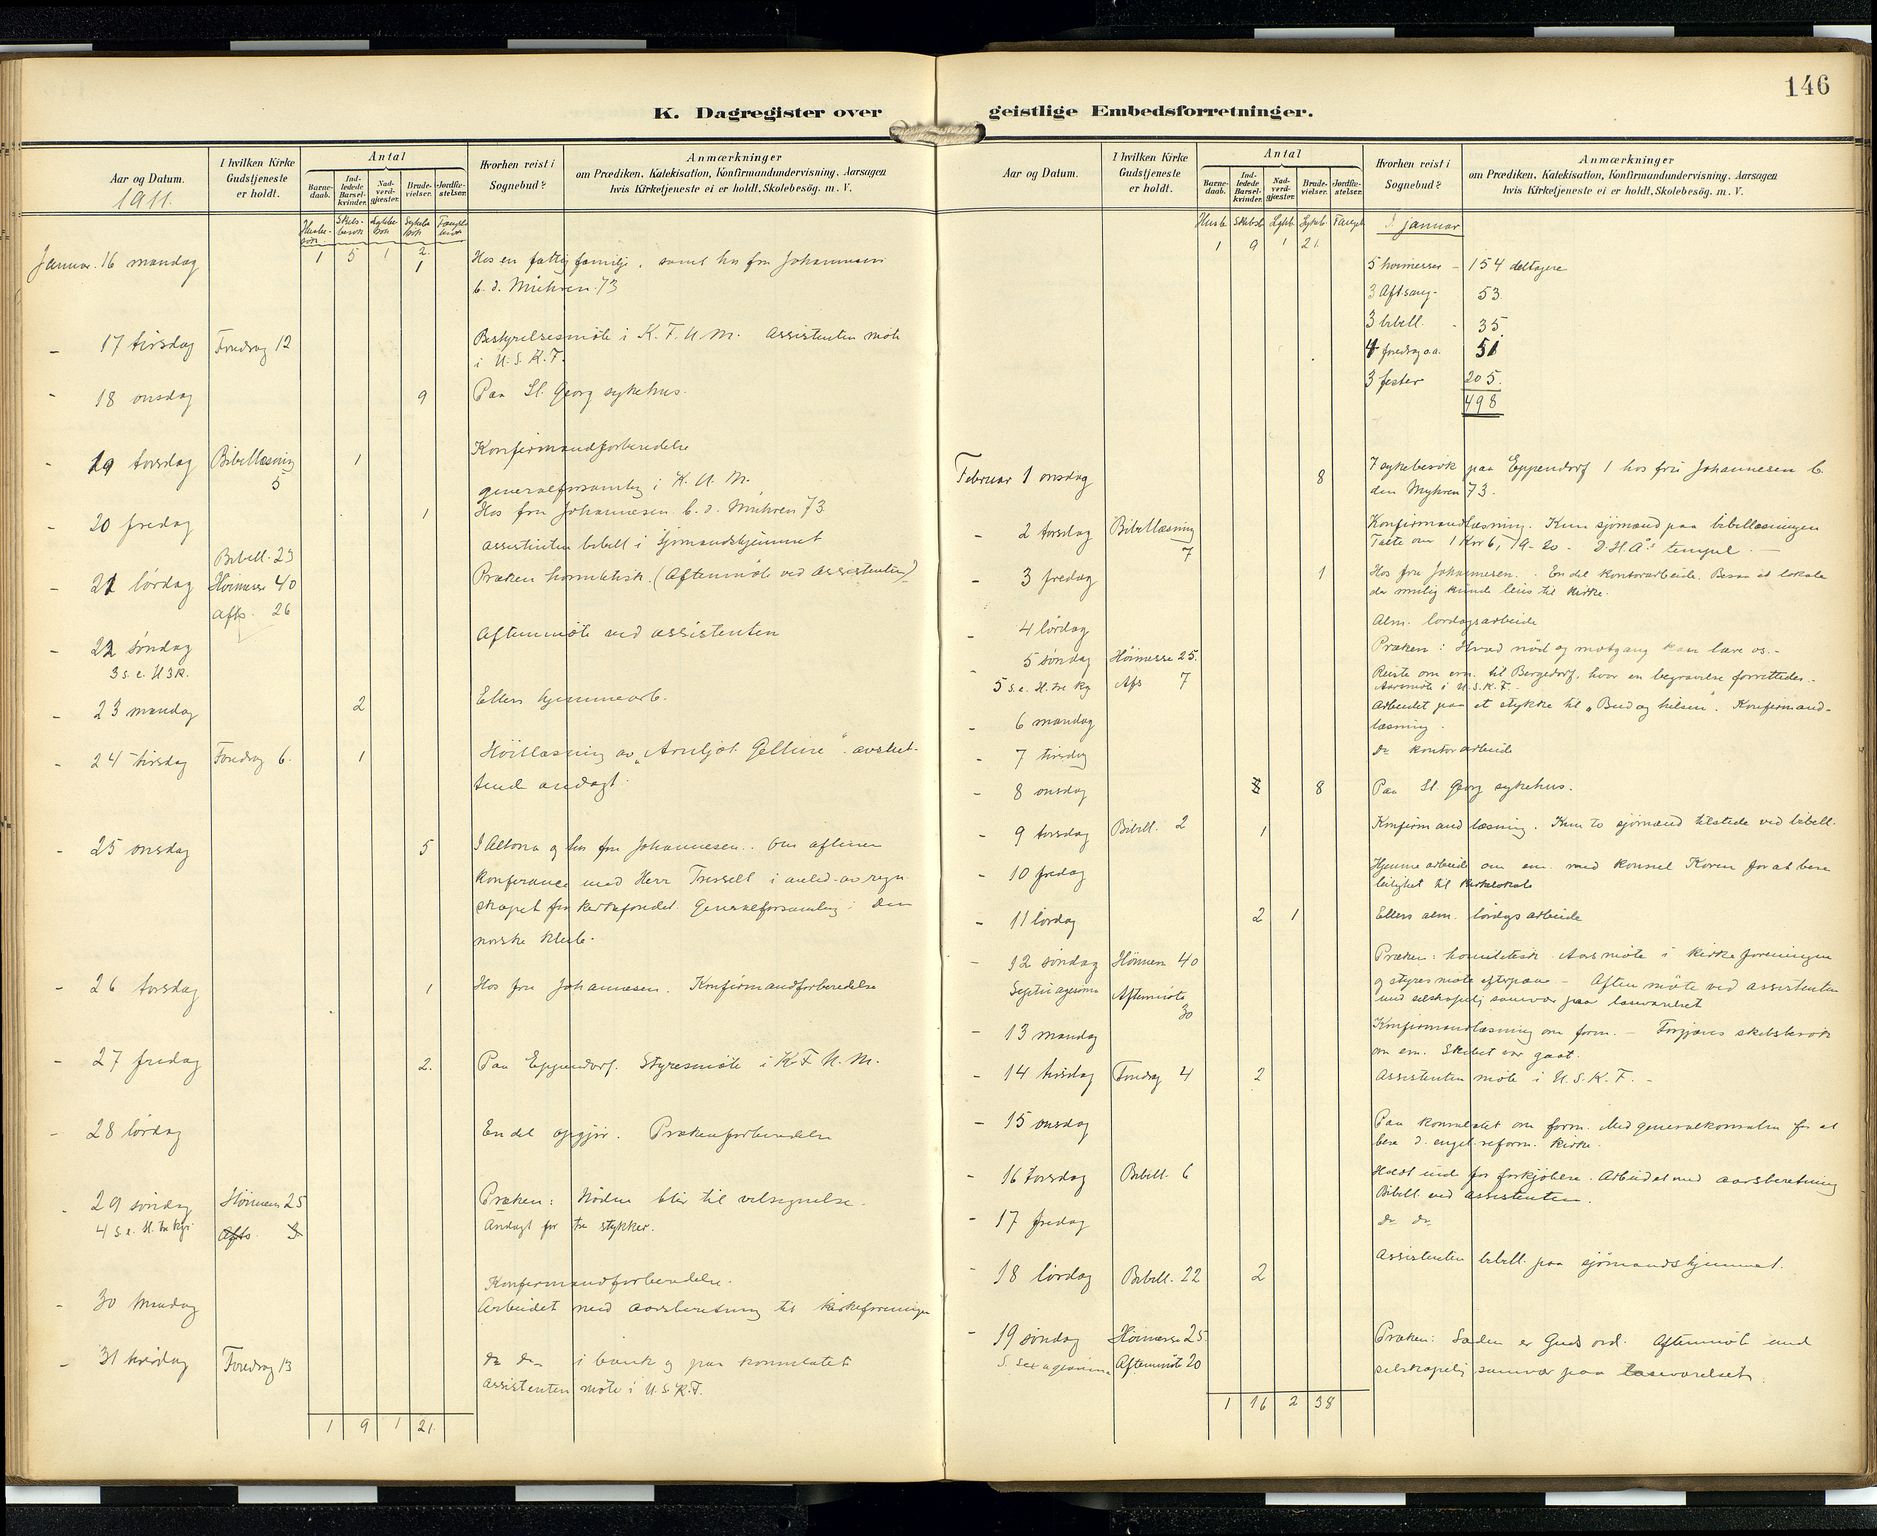 146
K. Dagregister over geistlige Embedsforretninger.
Aar og Datum.
I hvilken Kirke Gudstjeneste er holdt.
Antal
Barnedaab.
Indledede Barselkvinder.
Nadverdgjæster.
Brudevielser.
Jordfæstelser.
Hvorhen reist i Sognebud?
Anmærkninger
om Prædiken, Katekisation, Konfirmandundervisning, Aarsagen
hvis Kirketjeneste ei er holdt, Skolebesög. m. V.
1911.
1 5 1 2
Januar. 16 mandag 1 Hos en fattig familje, samt hos fru Johannesen
b. d. Mühren 73
- 17 tirsdag Foredrag 12 Bestyrelsesmøte i K. F. U. M. Assistenten møte
i U. S. K. F.
- 18 onsdag 9 Paa St. Georg sykehus.
- 19 torsdag Bibellæsning 5 1 Konfirmandforberedelse
generalforsamling i K. U. M.
- 20 fredag 1 Hos fru Johannesen b. d. Mühren 73
Assistenten bibell i Sjömandshjemmet
Bibell. 23
- 21 lørdag Höimesse 40 Præken homiletisk. (Aftenmöte ved assistenten)
Afts. 26
- 22 søndag Aftenmöte ved assistenten
3 s. e. H 3 K.
- 23 mandag 2 Ellers hjemmearb.
- 24 tirsdag Foredrag 6. 1 Höitlæsning av "Arnljot Gelline" avsluttende andagt.
- 25 onsdag 5 I Altona og hos fru Johannesen. Om aftenen
konferance med Herr Tresselt i anled. av regnskapet for kirkefondet. Generalforsamling i den
norske klub.
- 26 torsdag 1 Hos fru Johannesen. Konfirmandforberedelse
- 27 fredag 2. Paa Eppendorf. Styresmöte i K. F. U. M.
- 28 lørdag En del opgjör. Prækenforberedelse
- 29 søndag Höimesse 25 Præken: Nöden blir til velsignelse.
4 s. e. H. tre kgr Afts. 3 Andagt for tre stykker.
Konfirmandforberedelse.
- 30 mandag Arbeidet med aarsberetning til kirkeforeningen
- 31 tirsdag Foredrag 13 do do - i bank og paa konsulatet
Assistenten møte i U. S. K. F.
1 9 1 21.
Aar og Datum.
I hvilken Kirke Gudstjeneste er holdt.
Antal
Barnedaab.
Indledede Barselkvinder.
Nadverdgjæster.
Brudevielser.
Jordfæstelser.
Hvorhen reist i Sognebud?
Anmærkninger
om Prædiken, Katekisation, Konfirmandundervisning, Aarsagen
hvis Kirketjeneste ei er holdt, Skolebesög. m. V.
I januar
1 9 1 21.
5 höimesser - 154 deltagere
3 Aftsang - 53.
3 bibell. - 35.
4 foredrag o.a. 51
3 fester 205.
498
Februar 1 onsdag 8 7 sykebesøk paa Eppendorf 1 hos fru Johannesen b.
den Myhren 73.
- 2 torsdag Bibellæsning 7 Konfirmandlæsning. Kun sjömænd paa bibellæsningen
Talte om 1 Kor 6, 19-20 - D. H. A.s tempel. -
- 3 fredag 1 Hos fru Johannesen. En del kontorarbeide. Besaa et lokale
der mulig kunde leies til kirke.
- 4 lørdag Alm. lørdagsarbeide
- 5 søndag Höimesse 25. Præken: Hvad nöd og motgang kan lære os. -
5 s. e. H. tre kg Afs 7 Reiste om em. til Bergedorf, hvor en begravelse forrettedes.
Aarsmöte i U. S. K. F. -
- 6 mandag Arbeidet paa et stykke til "Bud og hilsen". Konfirmandlæsning.
- 7 tirsdag do kontorarbeide
- 8 onsdag 8 Paa St. Georg sykehus.
- 9 torsdag Bibell. 2 1 Konfirmandlæsning. Kun to sjömænd tilstede ved bibell.
- 10 fredag Hjemmearbeide om em. med konsul Koren for at bese
leilighet til kirkelokale
- 11 lørdag 2 1 Ellers alm. lördagsarbeide
- 12 søndag Höimesse 40 Præken: homiletisk. Aarsmöte i kirkeforeningen
Septuagesima Aftenmöte 30 og styresmöte efterpaa - Aftenmöte ved assistenten
med selskapelig samvær paa læseværelset
- 13 mandag Konfirmandlæsning om form. - Forgjæves skibsbesøk
om em. Skibet var gaat.
- 14 tirsdag Foredrag 4 2 Assistenten möte i U. S. K. F. -
- 15 onsdag Paa konsulatet om form. Med generalkonsulen for at
bese d. engel. reform. kirke.
- 16 torsdag Bibell. 6 Holdt inde for forkjölelse. Arbeidet med aarsberetning
Bibell. ved assistenten.
- 17 fredag do do
- 18 lørdag Bibell. 22 2 Assistenten bibell. paa sjömandshjemmet.
- 19 søndag Höimesse 25. Præken: Sæden er Guds ord. Aftenmöte med
S. Sexagesima Aftenmöte 20 selskapelig samvær paa læseværelset.
1 16 2 38